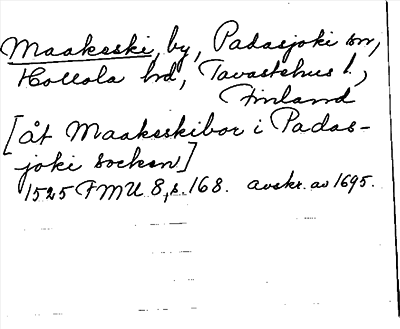 Maakeski, by, Padasjoki sn,
Hollola hd, Tavastehus l.,
Finland
[åt Maakeskibor i Padas-
joki socken]
1525 FMU 8, s. 168. avskr. av 1695.